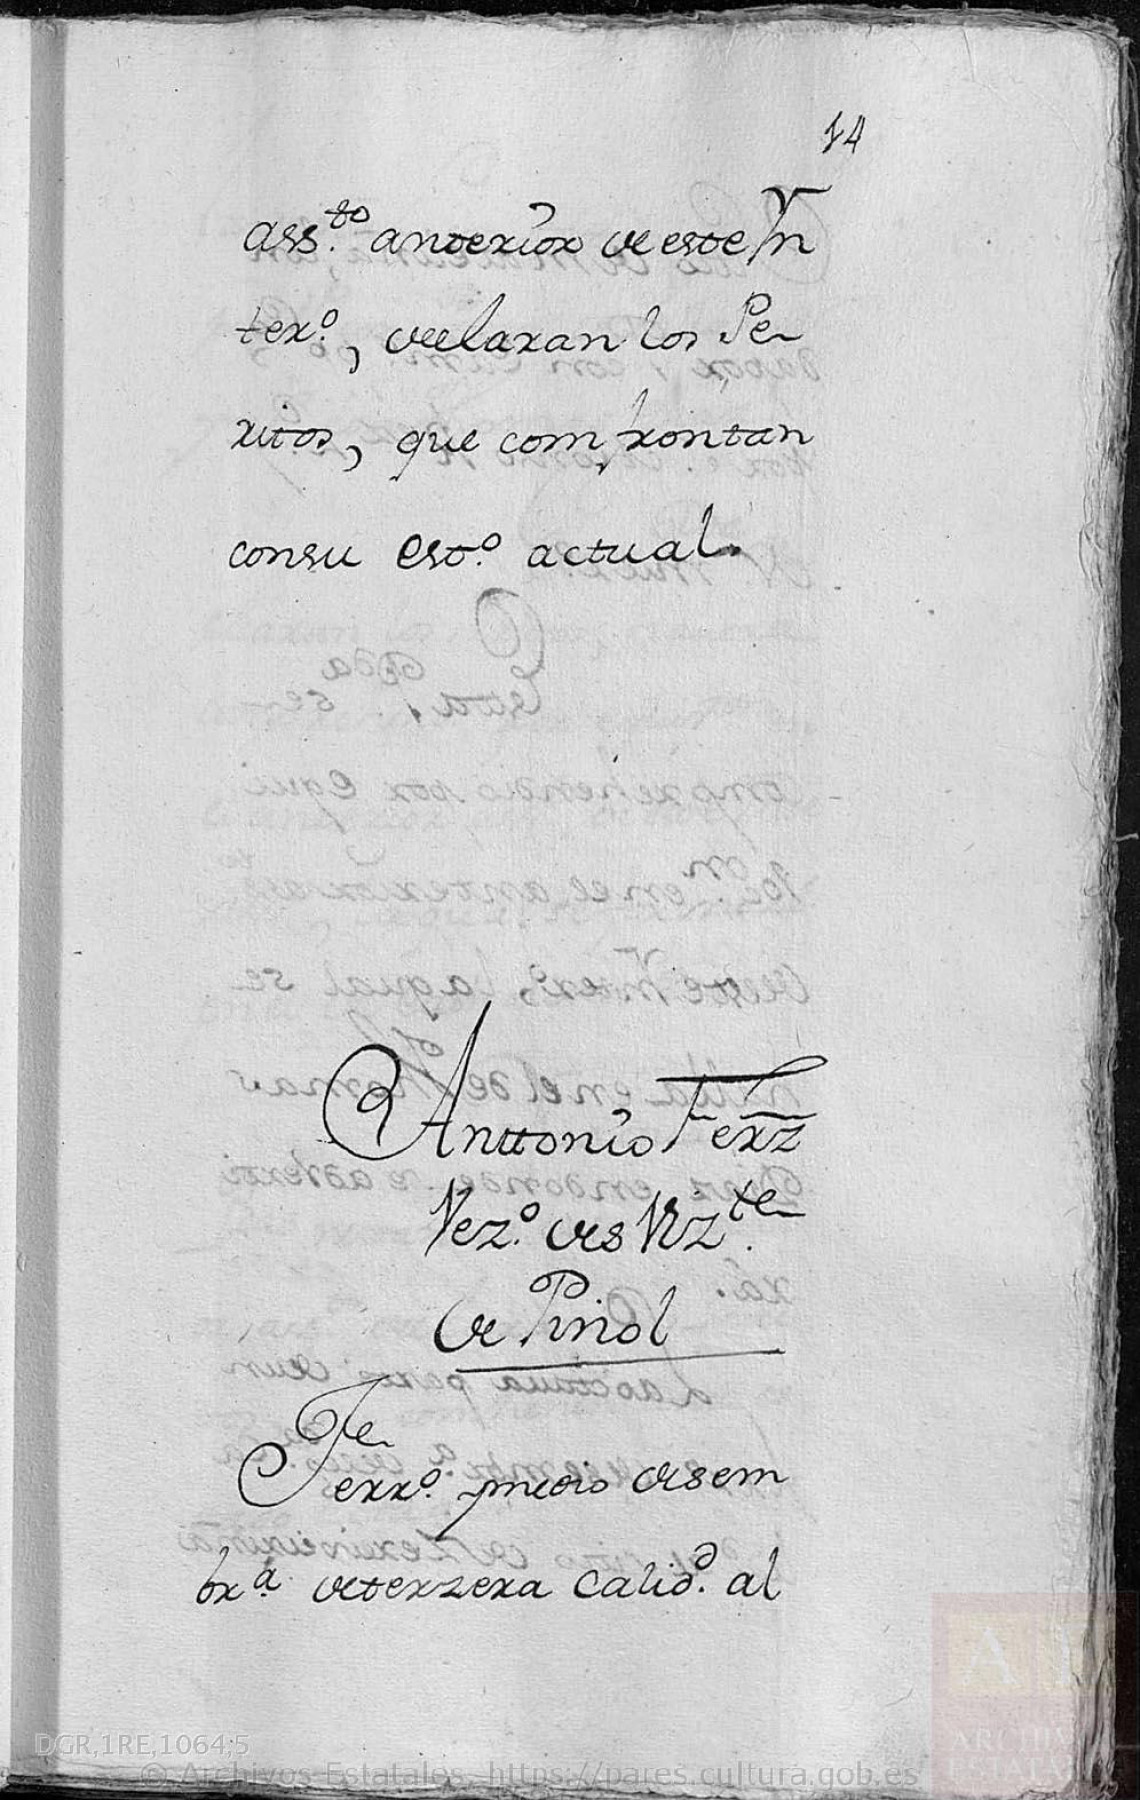 14
ass.to anterior de este Yn
ter.o, declaran los Pe-
ritos, que comfrontan
consu est.o actual.
Anttonio Ferz
Vez.o de s Viz.te
de Pinol
Fe
Ferr.o predio desem
br.a deterzera Calid.d al
DGR,1RE,1064,5
© Archivos Estatales, https://pares.cultura.gob.es